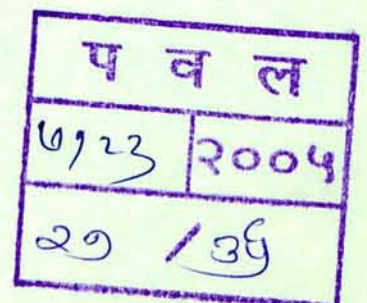 प व ल
७१२३ २००५
२१ /